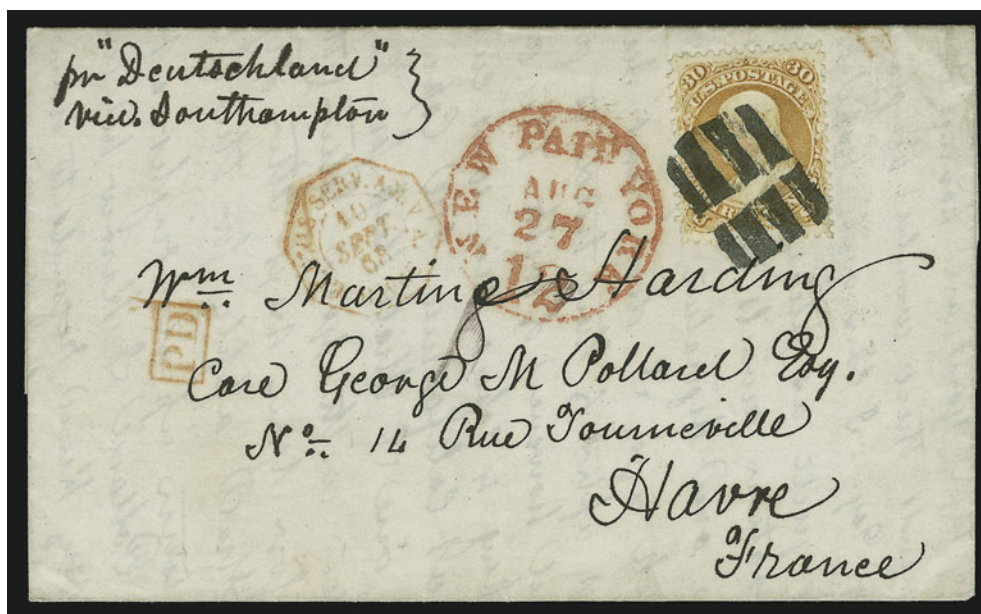 pr "Deutschland"
via. Southampton
30 30
U.S. POSTAGE
NEW PAID YORK
AUG
27
12
SERV. AM.
10
SEPT.
68
PD
Wm. Martin & Harding
Care George M Pollard Esq.
No. 14 Rue Tourneville
Havre
France